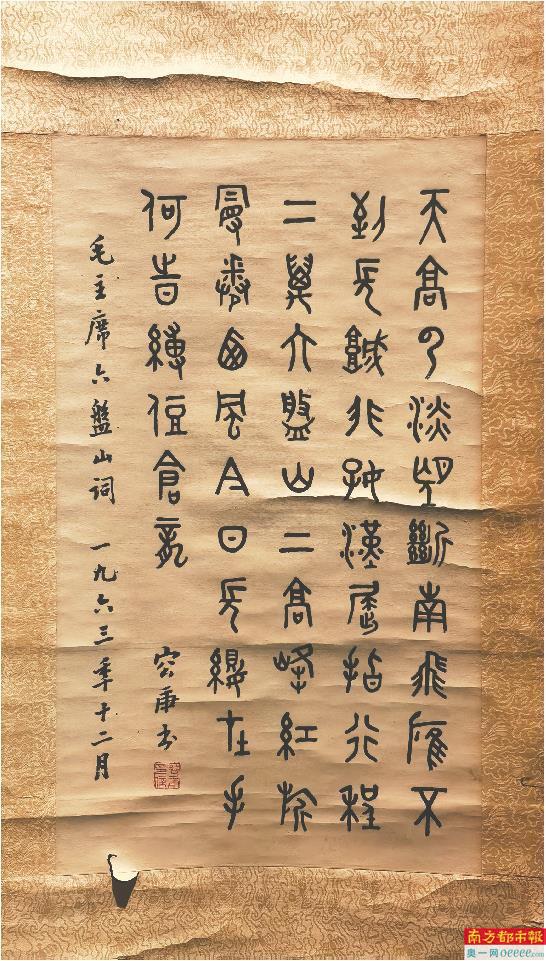 天高云淡望斷南飛雁不
到長城非好漢屈指行程
二萬六盤山上高峰紅旂
曼卷西風今日長纓在手
何時縛住倉龍
容庚书
毛主席六盤山词 一九六三年十二月
南方都市報
奥一网oeeee.com